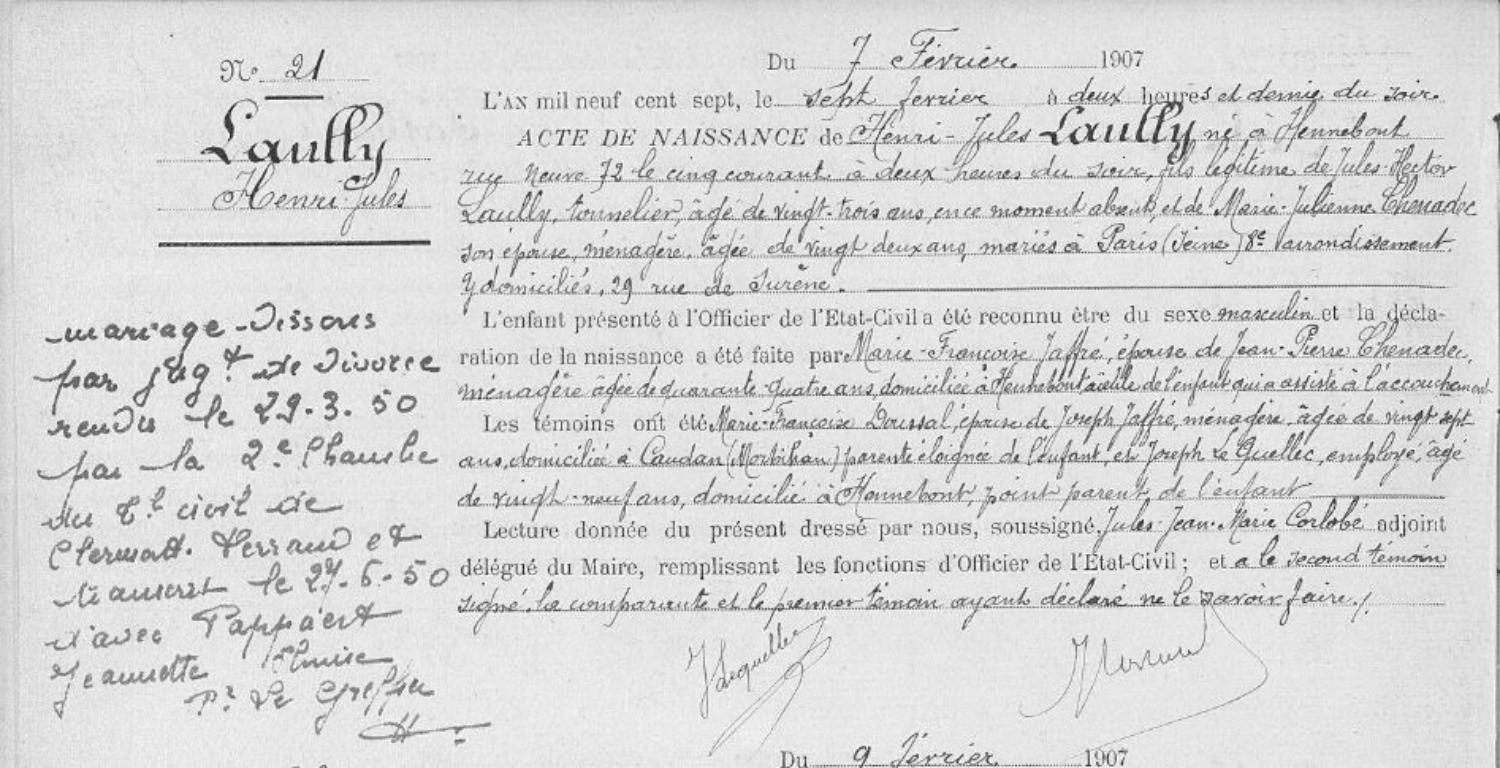 N° 21
Laully
Henri-Jules
mariage dissous
par jugt de divorce
rendu le 29.3.50
par la 2e Chambre
du tl civil de
Clermont-Ferrand et
transcrit le 27-6-50
d'avec Pappaert
Jeannette
Pr Le Greffier
Du 7 Février 1907
L'AN mil neuf cent sept, le sept fevrier à deux heures et demie du soir.
ACTE DE NAISSANCE de Henri-Jules Laully né à Hennebont
rue Neuve 72 le cinq courant à deux heures du soir, fils légitime de Jules-Hector
Laully, tonnelier, âgé de vingt-trois ans, en ce moment absent, et de Marie-Julienne Chenadec
son épouse, ménagère, âgée de vingt deux ans, mariés à Paris (Seine) 8e arrondissement.
Y domiciliés, 29 rue de Surène.
L'enfant présenté à l'Officier de l'Etat-Civil a été reconnu être du sexe masculin et la décla-
ration de la naissance a été faite par Marie-Françoise Jaffré, épouse de Jean-Pierre Chenadec,
ménagère âgée de quarante-quatre ans, domiciliée à Hennebont, aïeule de l'enfant qui a assisté à l'accouchement
Les témoins ont été Marie-Françoise Doussal, épouse de Joseph Jaffré, ménagère, âgée de vingt-sept
ans, domiciliée à Caudan (Morbihan) parente éloignée de l'enfant, et Joseph Le Quellec, employé, âgé
de vingt-neuf ans, domicilié à Hennebont, point parent de l'enfant
Lecture donnée du présent dressé par nous, soussigné, Jules-Jean-Marie Corlobé adjoint
délégué du Maire, remplissant les fonctions d'Officier de l'Etat-Civil ; et a le second témoin
signé. la comparante et le premier témoin ayant déclaré ne le savoir faire./.
J Lequellec
Du 9 Février 1907